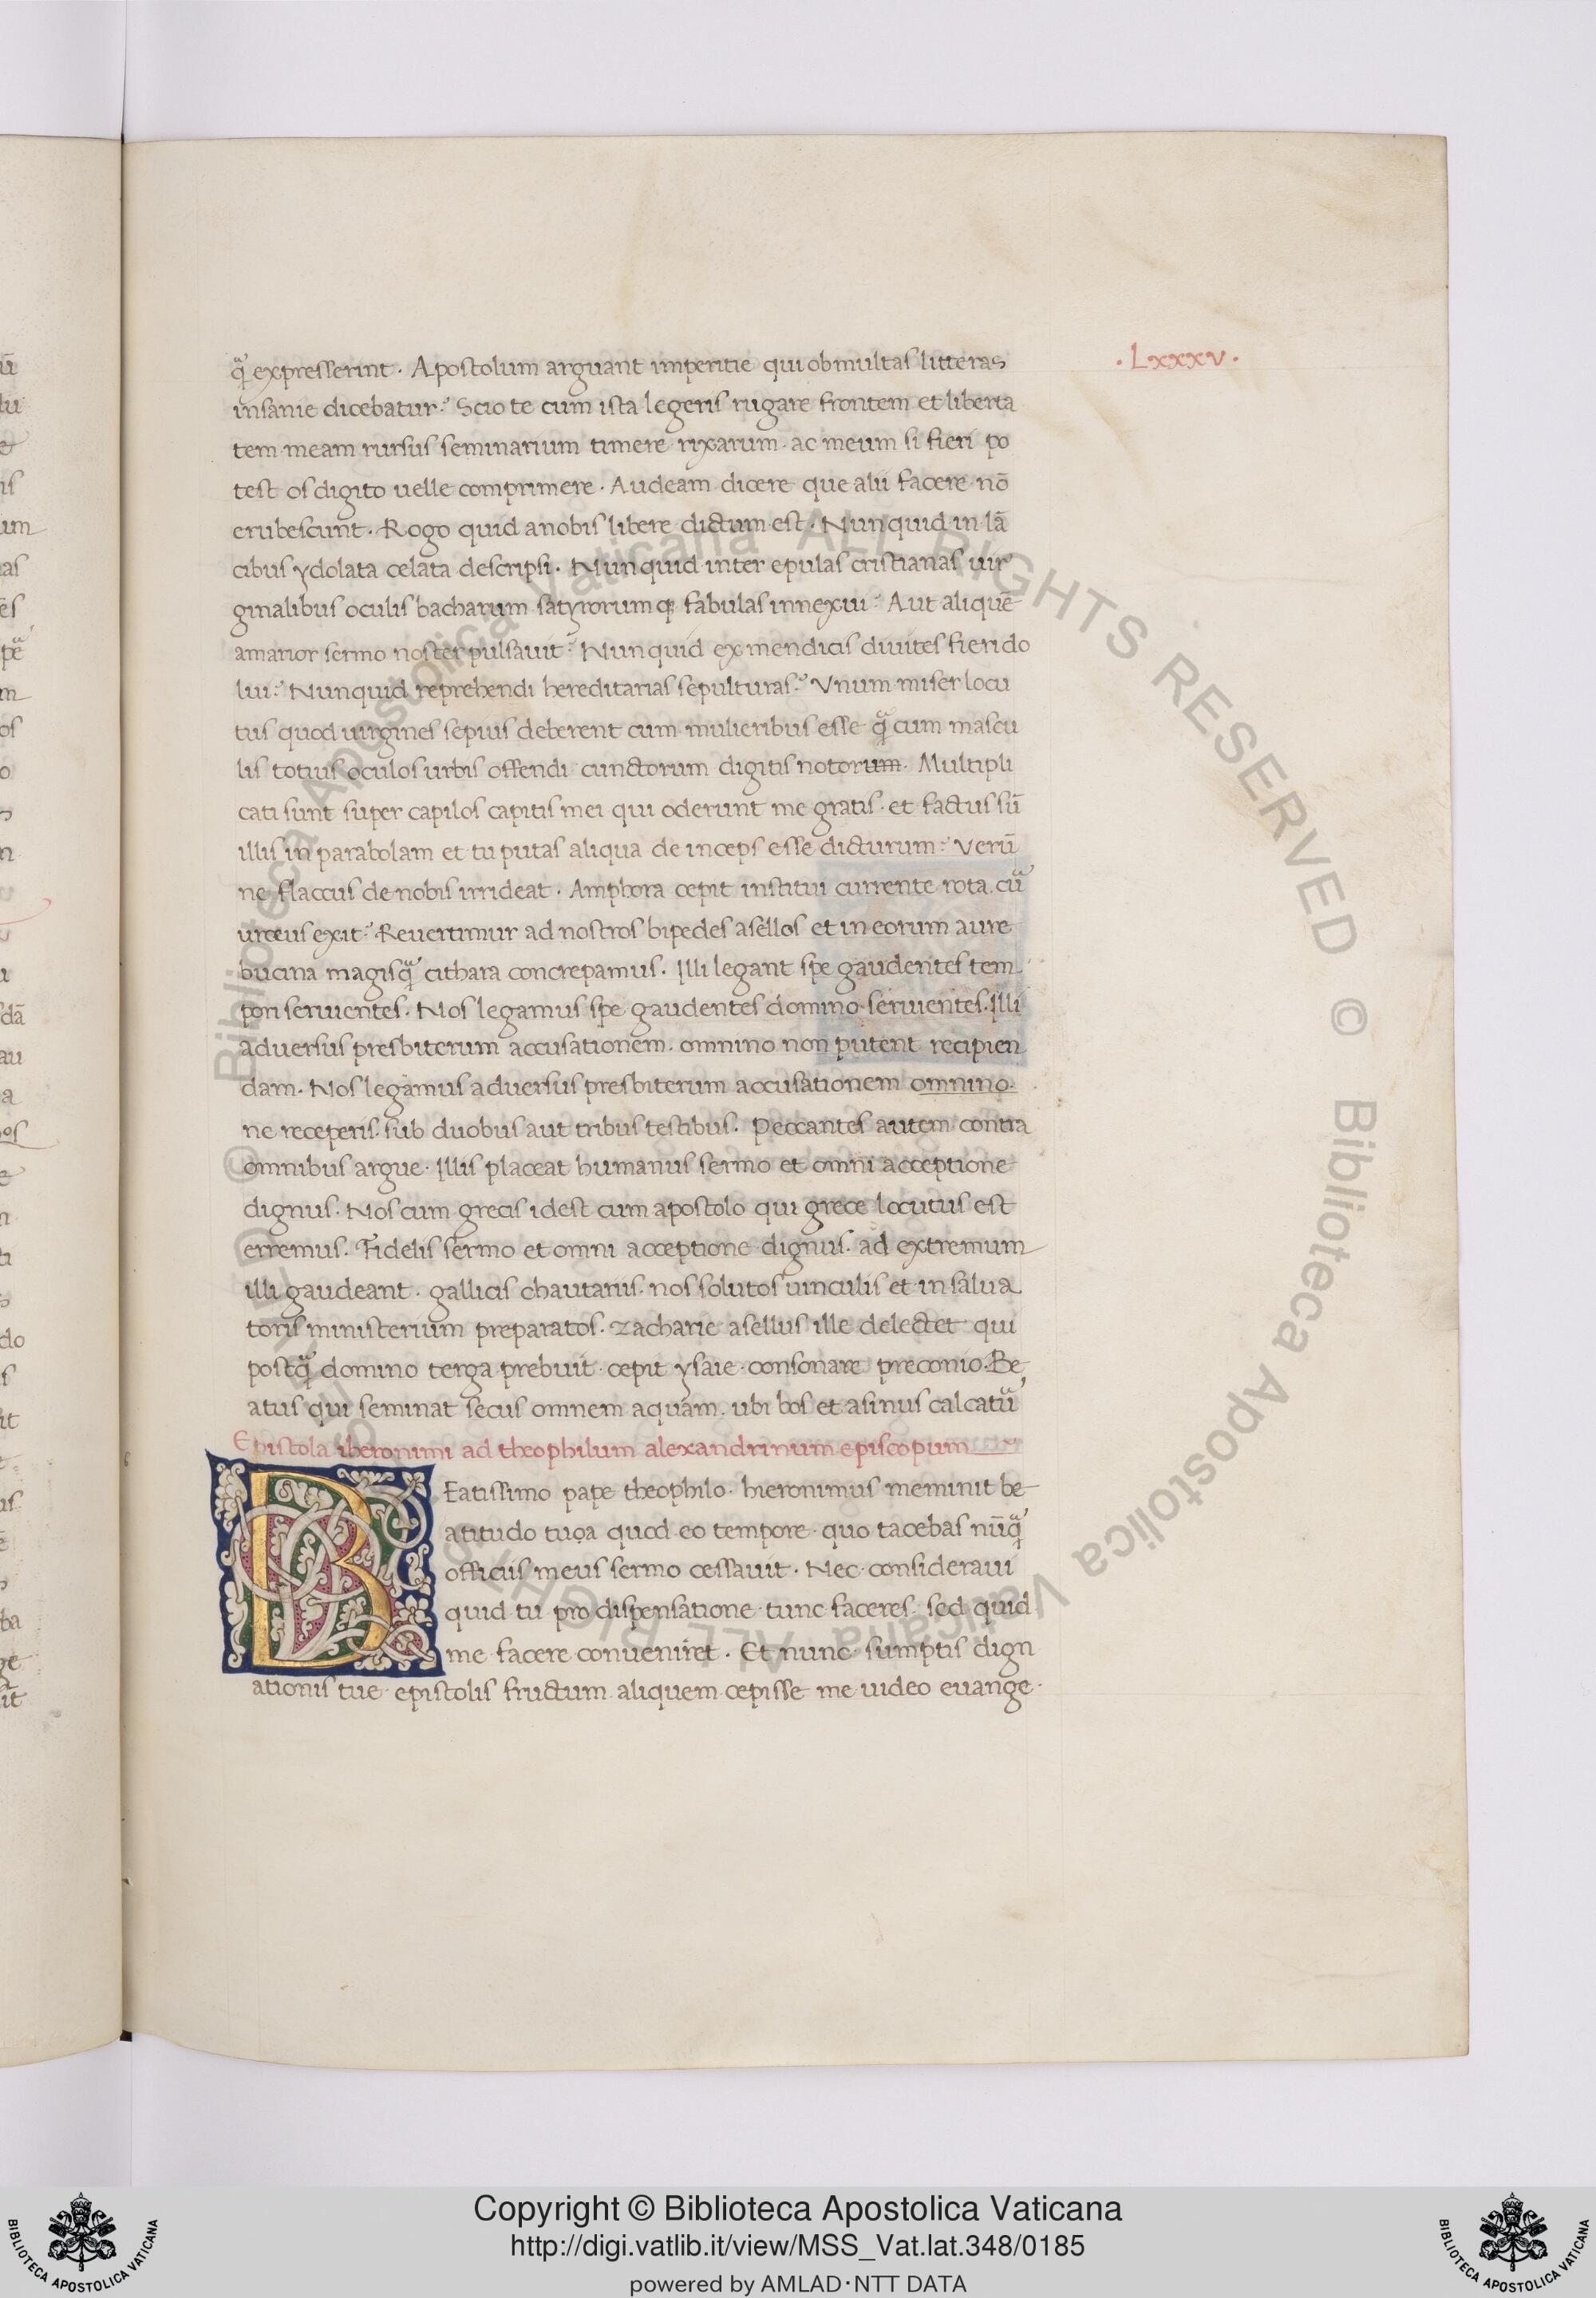 q̃ expresserint. Apostolum arguant imperitie qui ob multas litteras
insanie dicebatur. Scio te cum ista legeris rugare frontem et liberta
tem meam rursus seminarium timere rixarum. ac meum si fieri po
test os digito uelle comprimere. Audeam dicere que alii facere nō
erubescunt. Rogo quid a nobis libere dictum est. Nunquid in lā
cibus ydolata celata descripsi. Nunquid inter epulas cristianas uir
ginalibus oculis bacharum satyrorumq; fabulas innexui: Aut aliquē
amarior sermo noster pulsauit: Nunquid ex mendicis diuites fieri do
lui: Nunquid reprehendi hereditarias sepulturas: Vnum miser locu
tus quod uirgines sepius deberent cum mulieribus esse q̃ cum mascu
lis totius oculos urbis offendi cunctorum digitis notorum. Multipli
cati sunt super capilos capitis mei qui oderunt me gratis. et factus sū
illis in parabolam et tu putas aliqua de inceps esse dicturum: Verū
ne flaccus de nobis irrideat. Amphora cepit institui currente rota. cũ
urceus exit: Reuertimur ad nostros bipedes asellos et in eorum aure
bucina magisq̃ cithara concrepamus. Illi legant spe gaudentes tem
pori seruientes. Nos legamus spe gaudentes domino seruientes. Illi
aduersus presbiterum accusationem. omnino non putent recipien
dam. Nos legamus aduersus presbiterum accusationem omnino.
ne receperis. sub duobus aut tribus testibus. Peccantes autem contra
omnibus argue. Illis placeat humanus sermo et omni acceptione
dignus. Nos cum grecis idest cum apostolo qui grece locutus est
erremus. Fidelis sermo et omni acceptione dignus. ad extremum
illi gaudeant. gallicis chautariis. nos solutos uinculis et in salua
toris ministerium preparatos. zacharie asellus ille delectet qui
postq̃ domino terga prebuit. cepit ysaie consonare preconio. Be
atus qui seminat secus omnem aquam. ubi bos et asinus calcatũ
Epistola iheronimi ad theophilum alexandrinum episcopum
BEatissimo pape theophilo. hieronimus meminit be
atitudo tuoa quod eo tempore quo tacebas nūq̃
officiis meus sermo cessauit. Nec consideraui
quid tu pro dispensatione tunc faceres. sed quid
me facere conueniret. Et nunc sumptis dign
ationis tue epistolis fructum aliquem cepisse me uideo euange
.Lxxxv.
Copyright © Biblioteca Apostolica Vaticana
http://digi.vatlib.it/view/MSS_Vat.lat.348/0185
powered by AMLAD·NTT DATA
BIBLIOTECA APOSTOLICA VATICANA
BIBLIOTECA APOSTOLICA VATICANA
© Biblioteca Apostolica Vaticana ALL RIGHTS RESERVED © Biblioteca Apostolica Vaticana ALL RIGHTS RESERVED